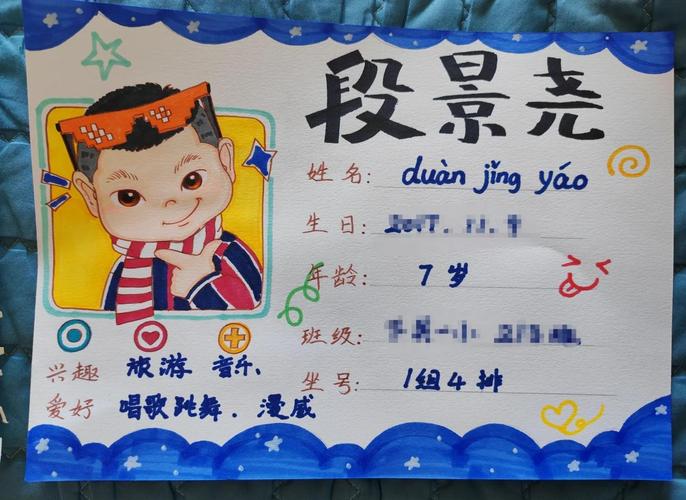 段景尧
姓名: duàn jǐng yáo
生日:
年龄: 7岁
班级:
坐号: 1组4排
兴趣 旅游 音乐、
爱好 唱歌跳舞. 漫威